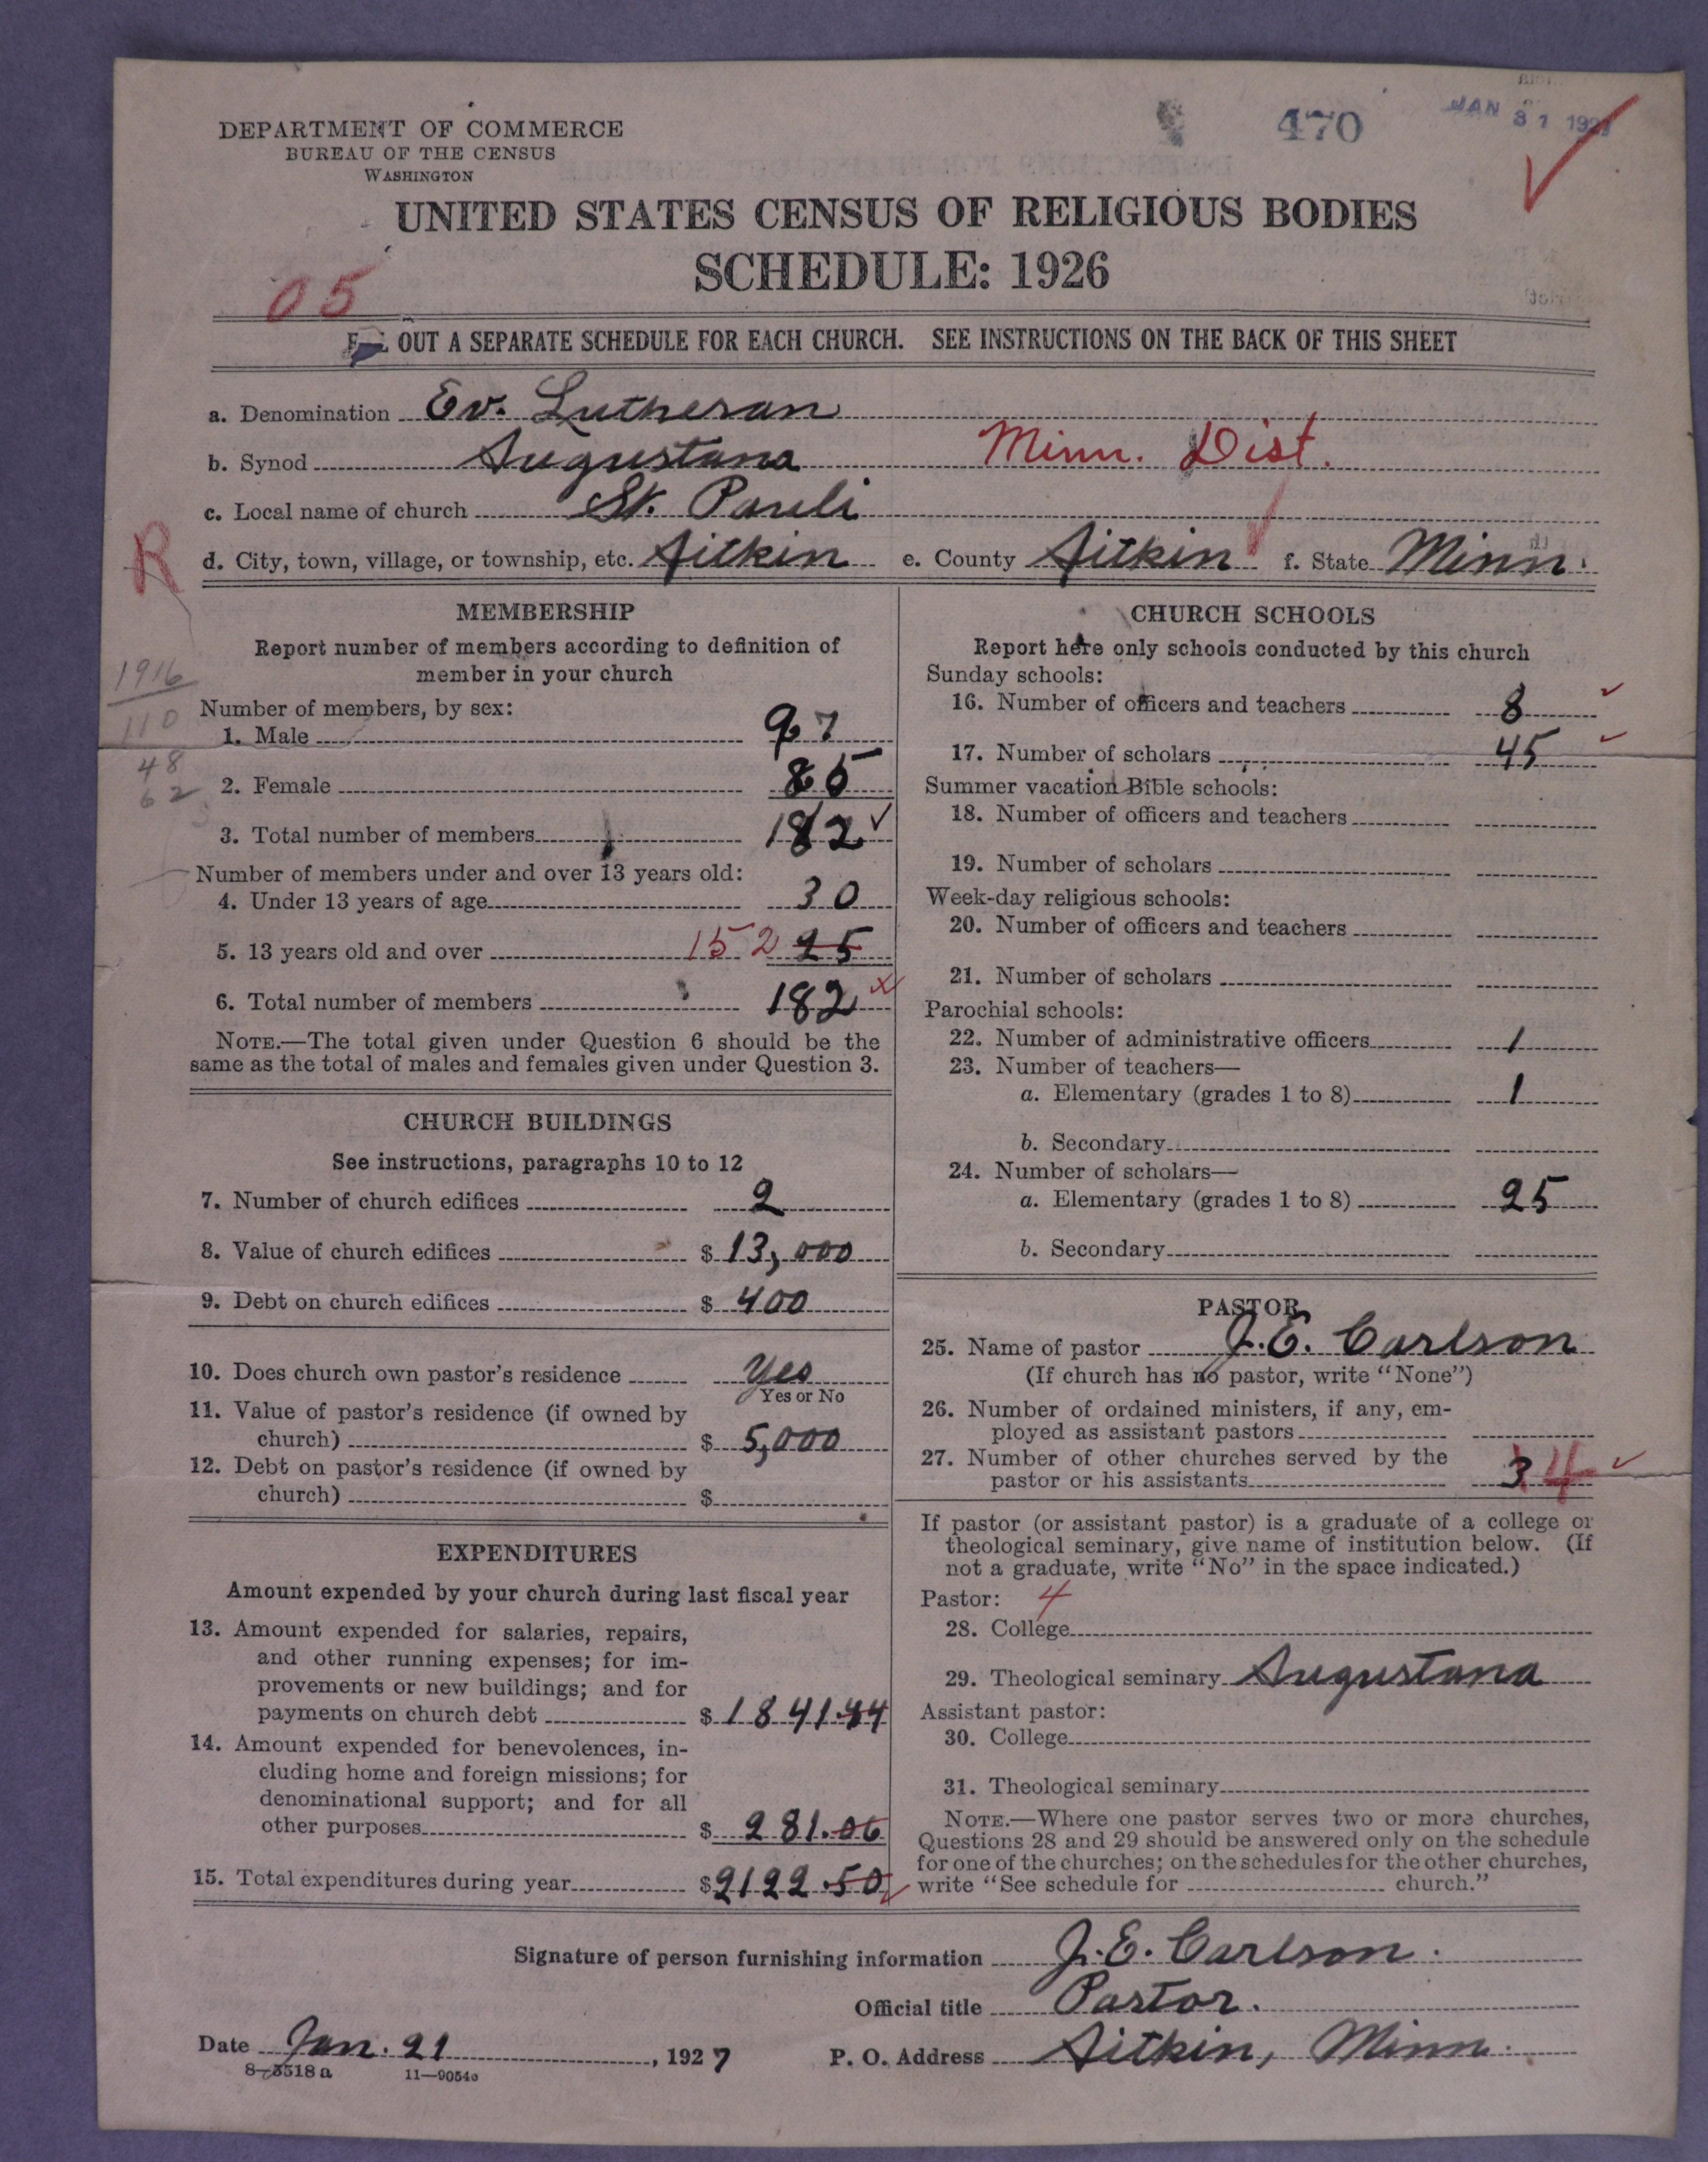 470
JAN 31 1927
DEPARTMENT OF COMMERCE
BUREAU OF THE CENSUS
WASHINGTON
UNITED STATES CENSUS OF RELIGIOUS BODIES
SCHEDULE: 1926
05
OUT A SEPARATE SCHEDULE FOR EACH CHURCH. SEE INSTRUCTIONS ON THE BACK OF THIS SHEET
a. Denomination Ev. Lutheran
b. Synod Augustana Minn. Dist.
c. Local name of church St. Pauli
R
d. City, town, village, or township, etc. Aitkin e. County Aitkin f. State Minn.
MEMBERSHIP
Report number of members according to definition of
member in your church
1916
110
48
62
Number of members, by sex:
1. Male 97
2. Female 85
3. Total number of members 182 ✓
Number of members under and over 13 years old:
4. Under 13 years of age 30
5. 13 years old and over 152 25
6. Total number of members 182 x
NOTE.—The total given under Question 6 should be the
same as the total of males and females given under Question 3.
CHURCH BUILDINGS
See instructions, paragraphs 10 to 12
7. Number of church edifices 2
8. Value of church edifices $ 13,000
9. Debt on church edifices $ 400
10. Does church own pastor's residence Yes
Yes or No
11. Value of pastor's residence (if owned by
church) $ 5,000
12. Debt on pastor's residence (if owned by
church) $
EXPENDITURES
Amount expended by your church during last fiscal year
13. Amount expended for salaries, repairs,
and other running expenses; for im-
provements or new buildings; and for
payments on church debt $ 1841.44
14. Amount expended for benevolences, in-
cluding home and foreign missions; for
denominational support; and for all
other purposes $ 281.06
15. Total expenditures during year $ 2122.50
CHURCH SCHOOLS
Report here only schools conducted by this church
Sunday schools:
16. Number of officers and teachers 8 ✓
17. Number of scholars 45 ✓
Summer vacation Bible schools:
18. Number of officers and teachers
19. Number of scholars
Week-day religious schools:
20. Number of officers and teachers
21. Number of scholars
Parochial schools:
22. Number of administrative officers 1
23. Number of teachers—
a. Elementary (grades 1 to 8) 1
b. Secondary
24. Number of scholars—
a. Elementary (grades 1 to 8) 25
b. Secondary
PASTOR
25. Name of pastor J. E. Carlson
(If church has no pastor, write "None")
26. Number of ordained ministers, if any, em-
ployed as assistant pastors
27. Number of other churches served by the
pastor or his assistants 3 4 ✓
If pastor (or assistant pastor) is a graduate of a college or
theological seminary, give name of institution below. (If
not a graduate, write "No" in the space indicated.)
Pastor: 4
28. College
29. Theological seminary Augustana
Assistant pastor:
30. College
31. Theological seminary
NOTE.—Where one pastor serves two or more churches,
Questions 28 and 29 should be answered only on the schedule
for one of the churches; on the schedules for the other churches,
write "See schedule for church."
Signature of person furnishing information J. E. Carlson.
Official title Pastor.
Date Jan. 21, 1927 P. O. Address Aitkin, Minn.
8—3518 a 11—9054